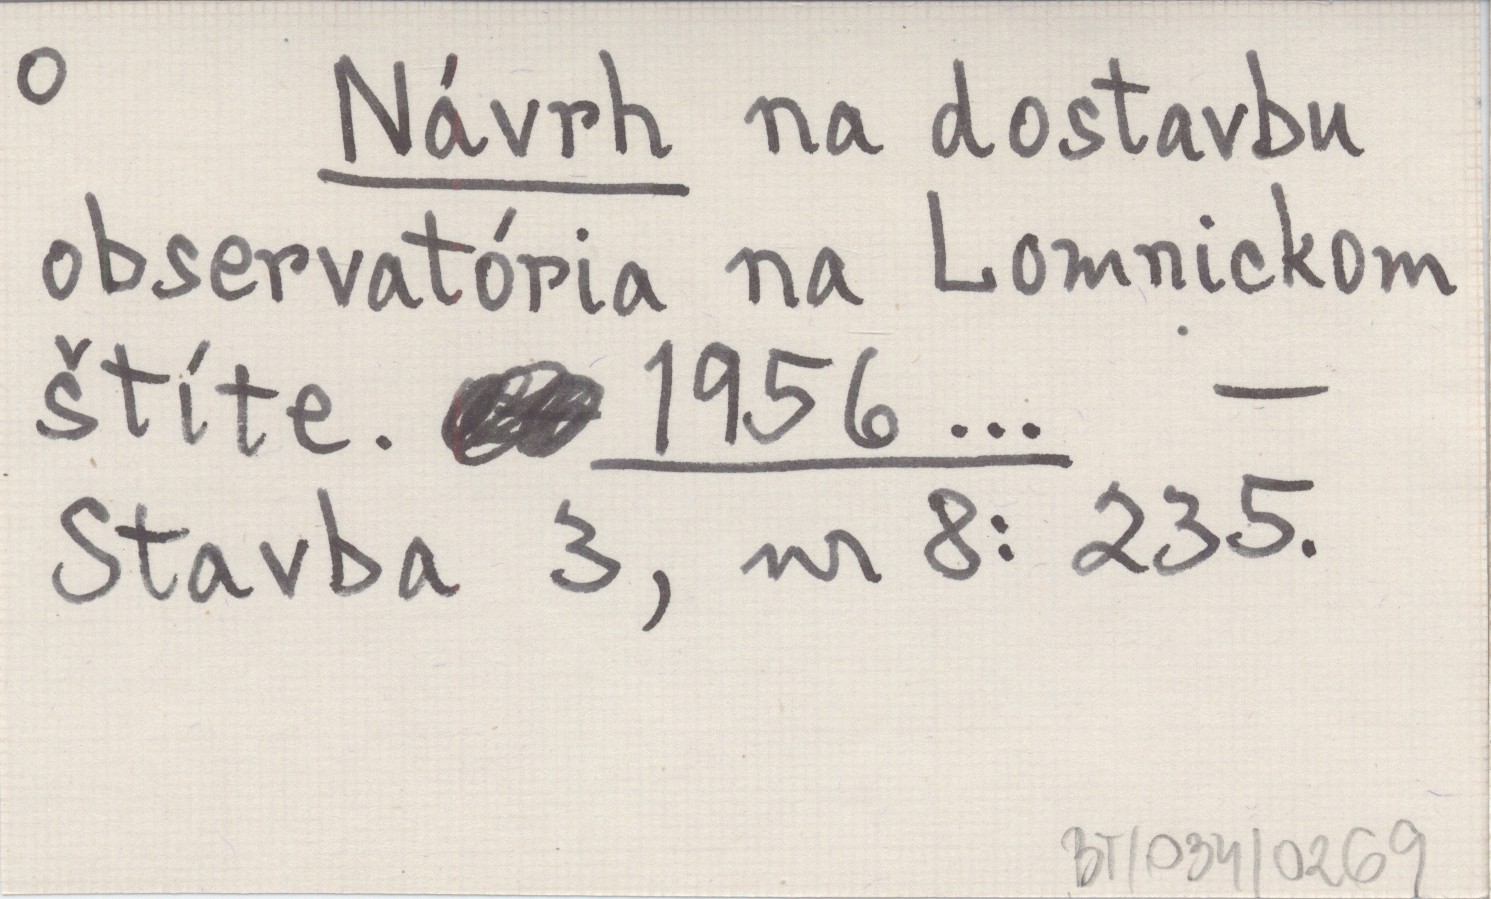 o Návrh na dostavbu
observatória na Lomnickom
štíte. 1956... —
Stavba 3, nr 8: 235.
BT/034/0269